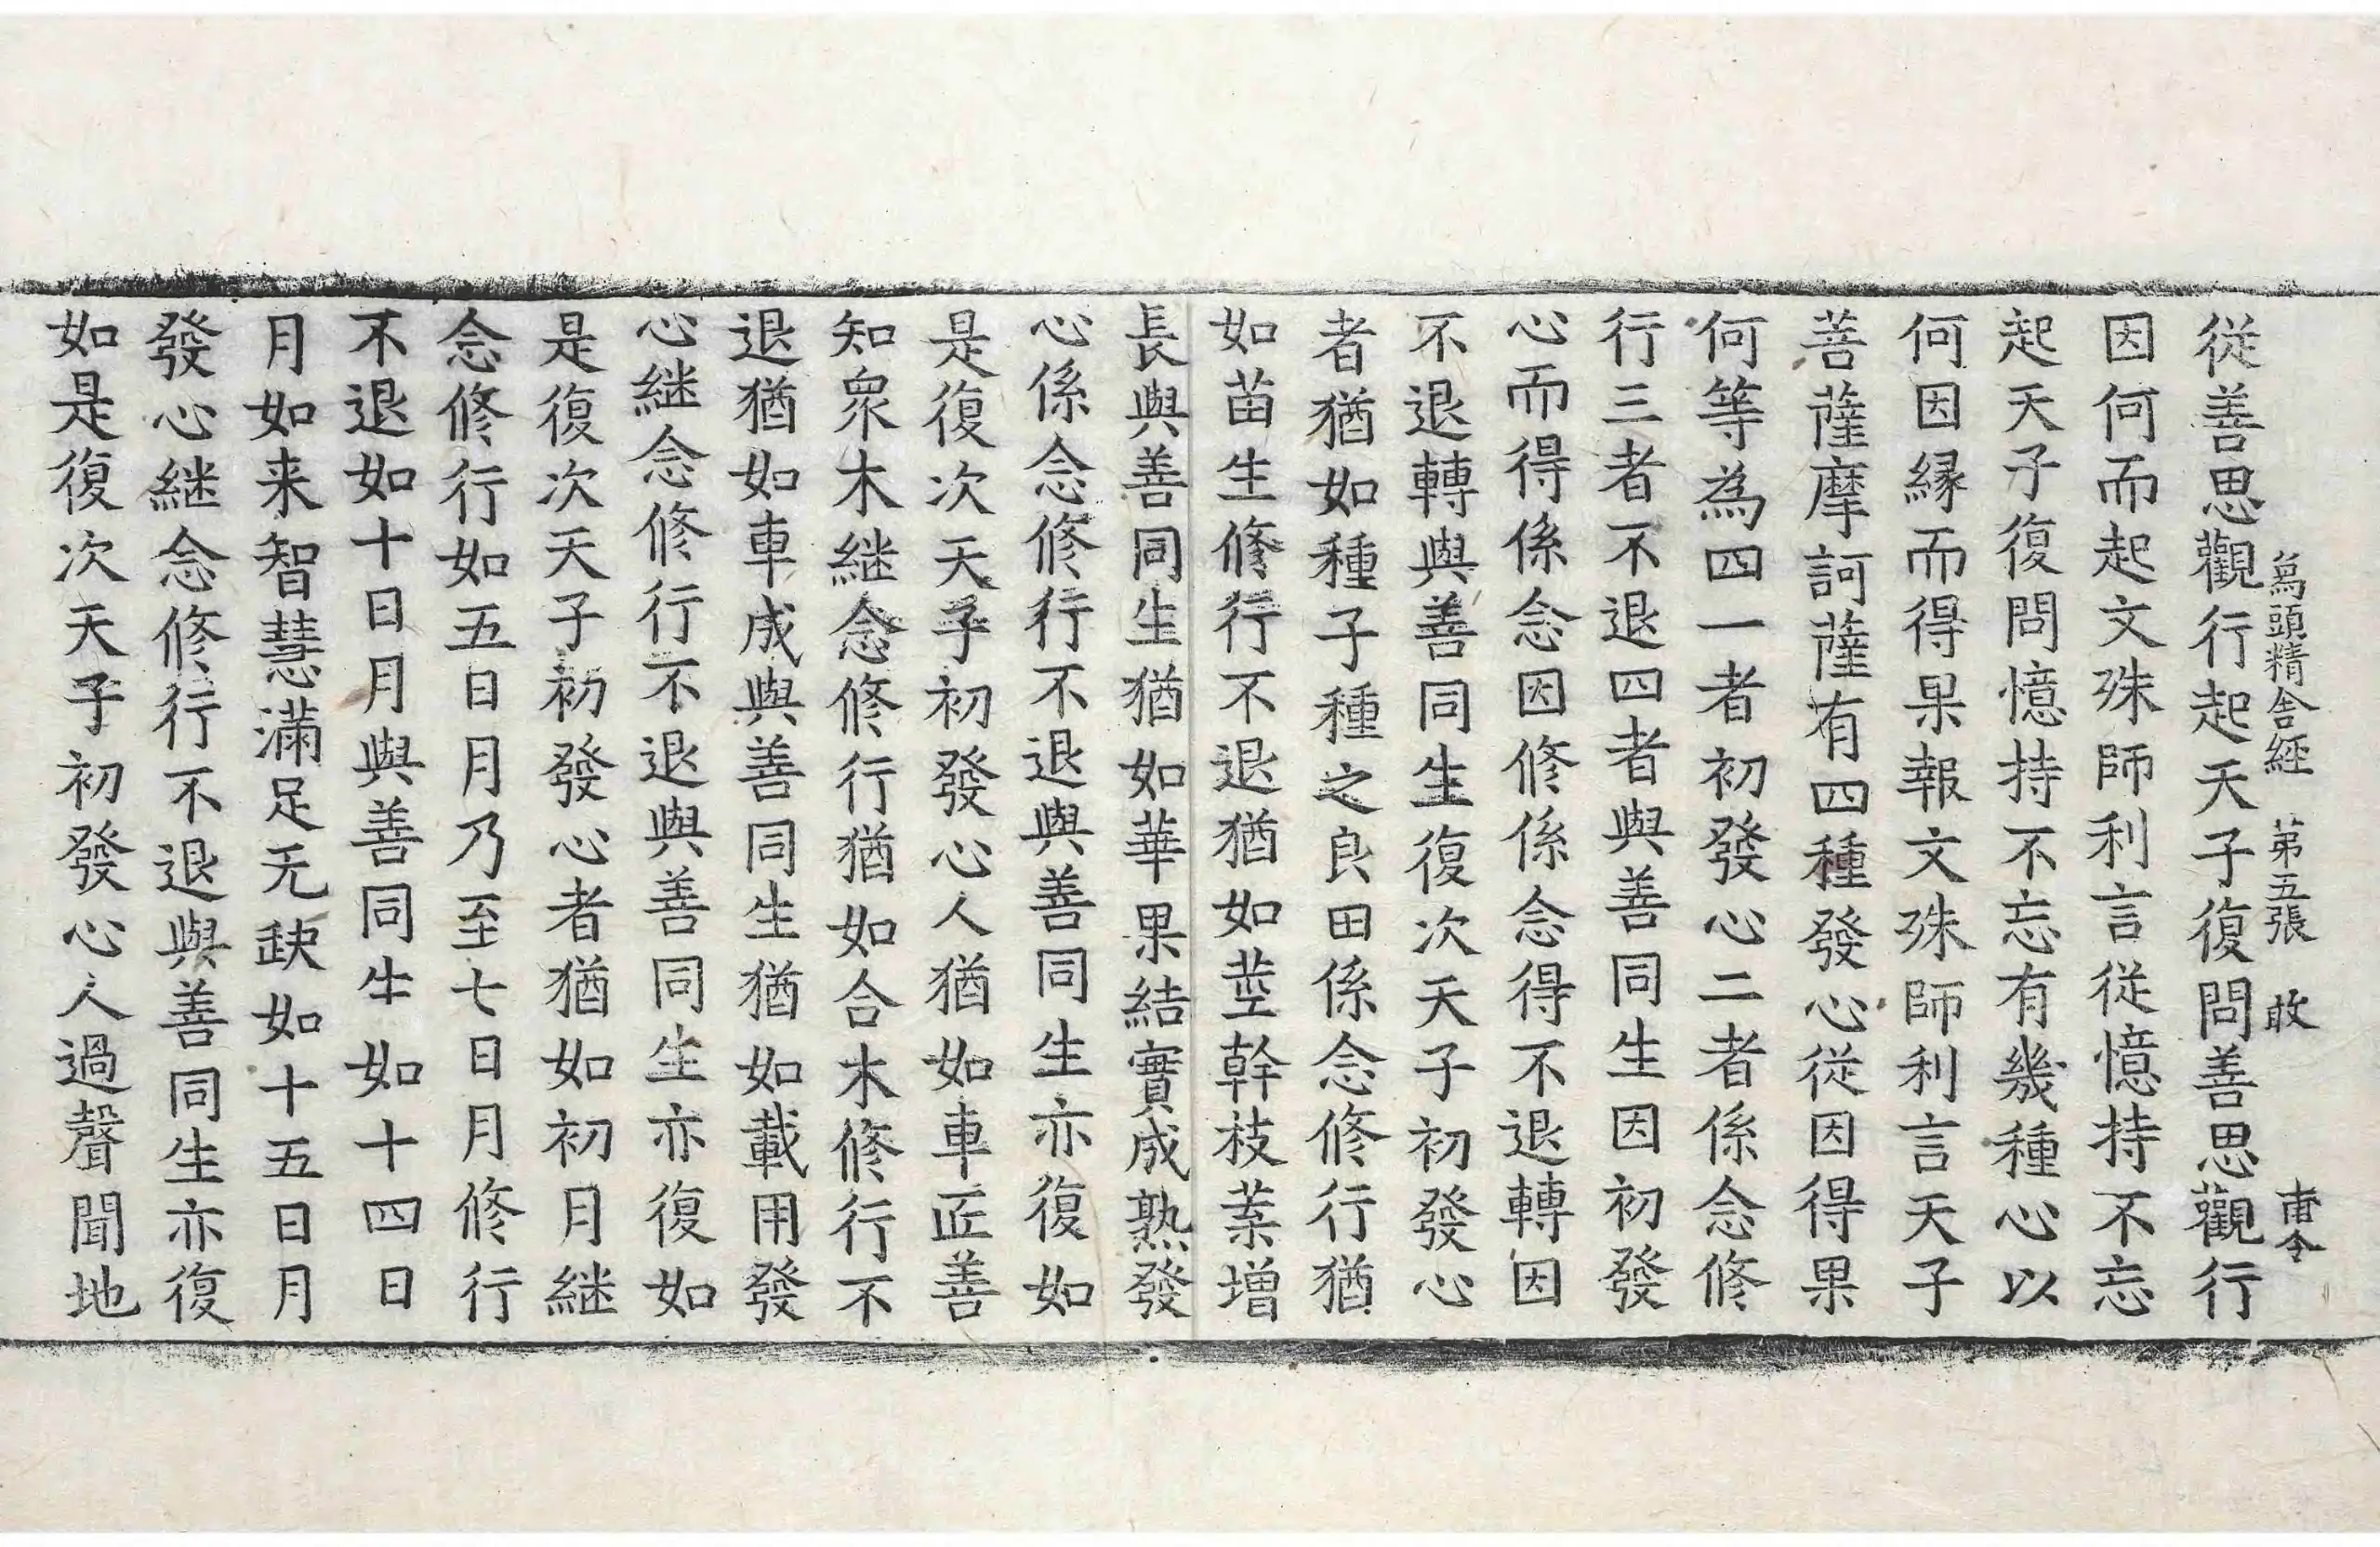 爲頭精舍經　苐五張　敢
從善思觀行起天子復問善思觀行
因何而起文殊師利言從憶持不忘
起天子復問憶持不忘有幾種心以
何因縁而得果報文殊師利言天子
菩薩摩訶薩有四種發心從因得果
何等為四一者初發心二者係念修
行三者不退四者與善同生因初發
心而得係念因修係念得不退轉因
不退轉與善同生復次天子初發心
者猶如種子種之良田係念修行猶
如苗生修行不退猶如莖幹枝葉增
長與善同生猶如華果結實成熟發
心係念修行不退與善同生亦復如
是復次天子初發心人猶如車匠善
知衆木継念修行猶如合木修行不
退猶如車成與善同生猶如載用發
心継念修行不退與善同生亦復如
是復次天子初發心者猶如初月継
念修行如五日月乃至七日月修行
不退如十日月與善同生如十四日
月如来智慧滿足无缺如十五日月
發心継念修行不退與善同生亦復
如是復次天子初發心人過聲聞地